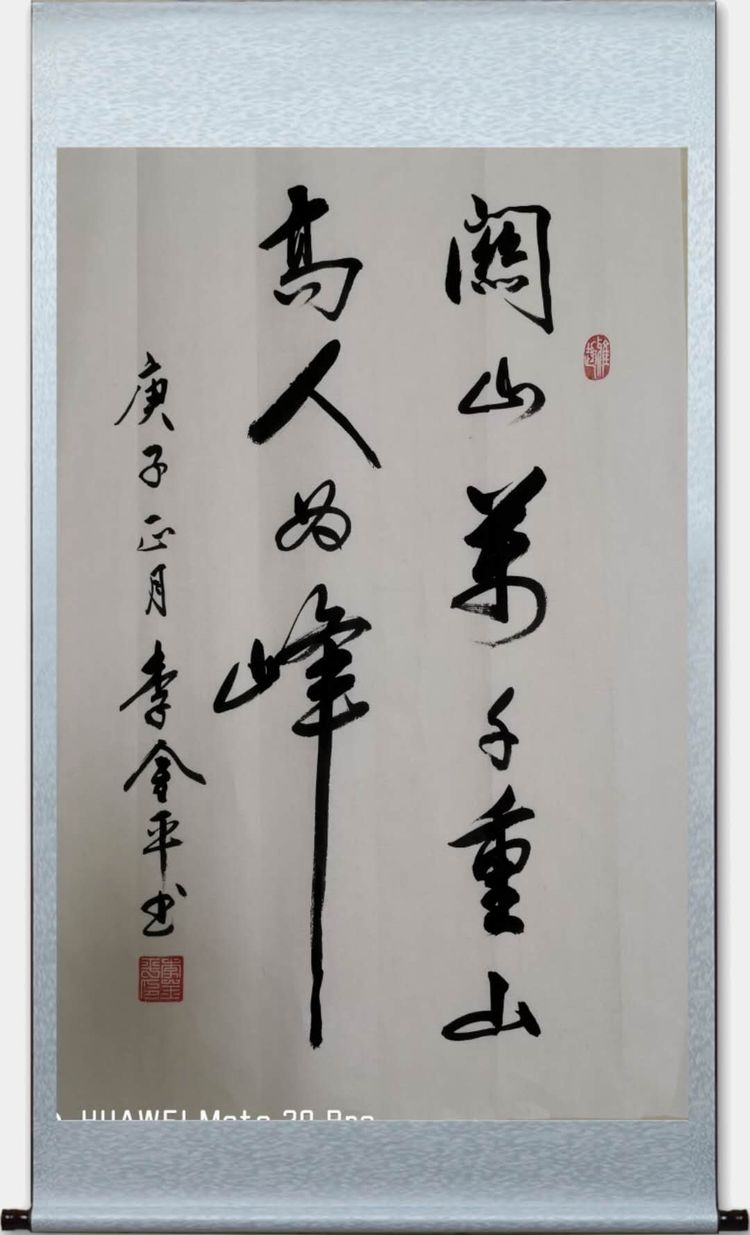 關山萬千重山
高人为峰
庚子正月李金平书
HUAWEI Mate Pro